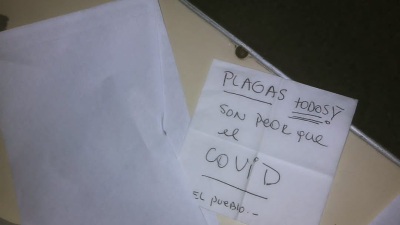 PLAGAS TODOS!
SON PEOR QUE
el
COViD
EL PUEBLO.-